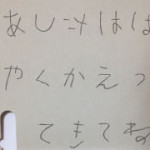 あしたはは
やくかえっ
てきてね